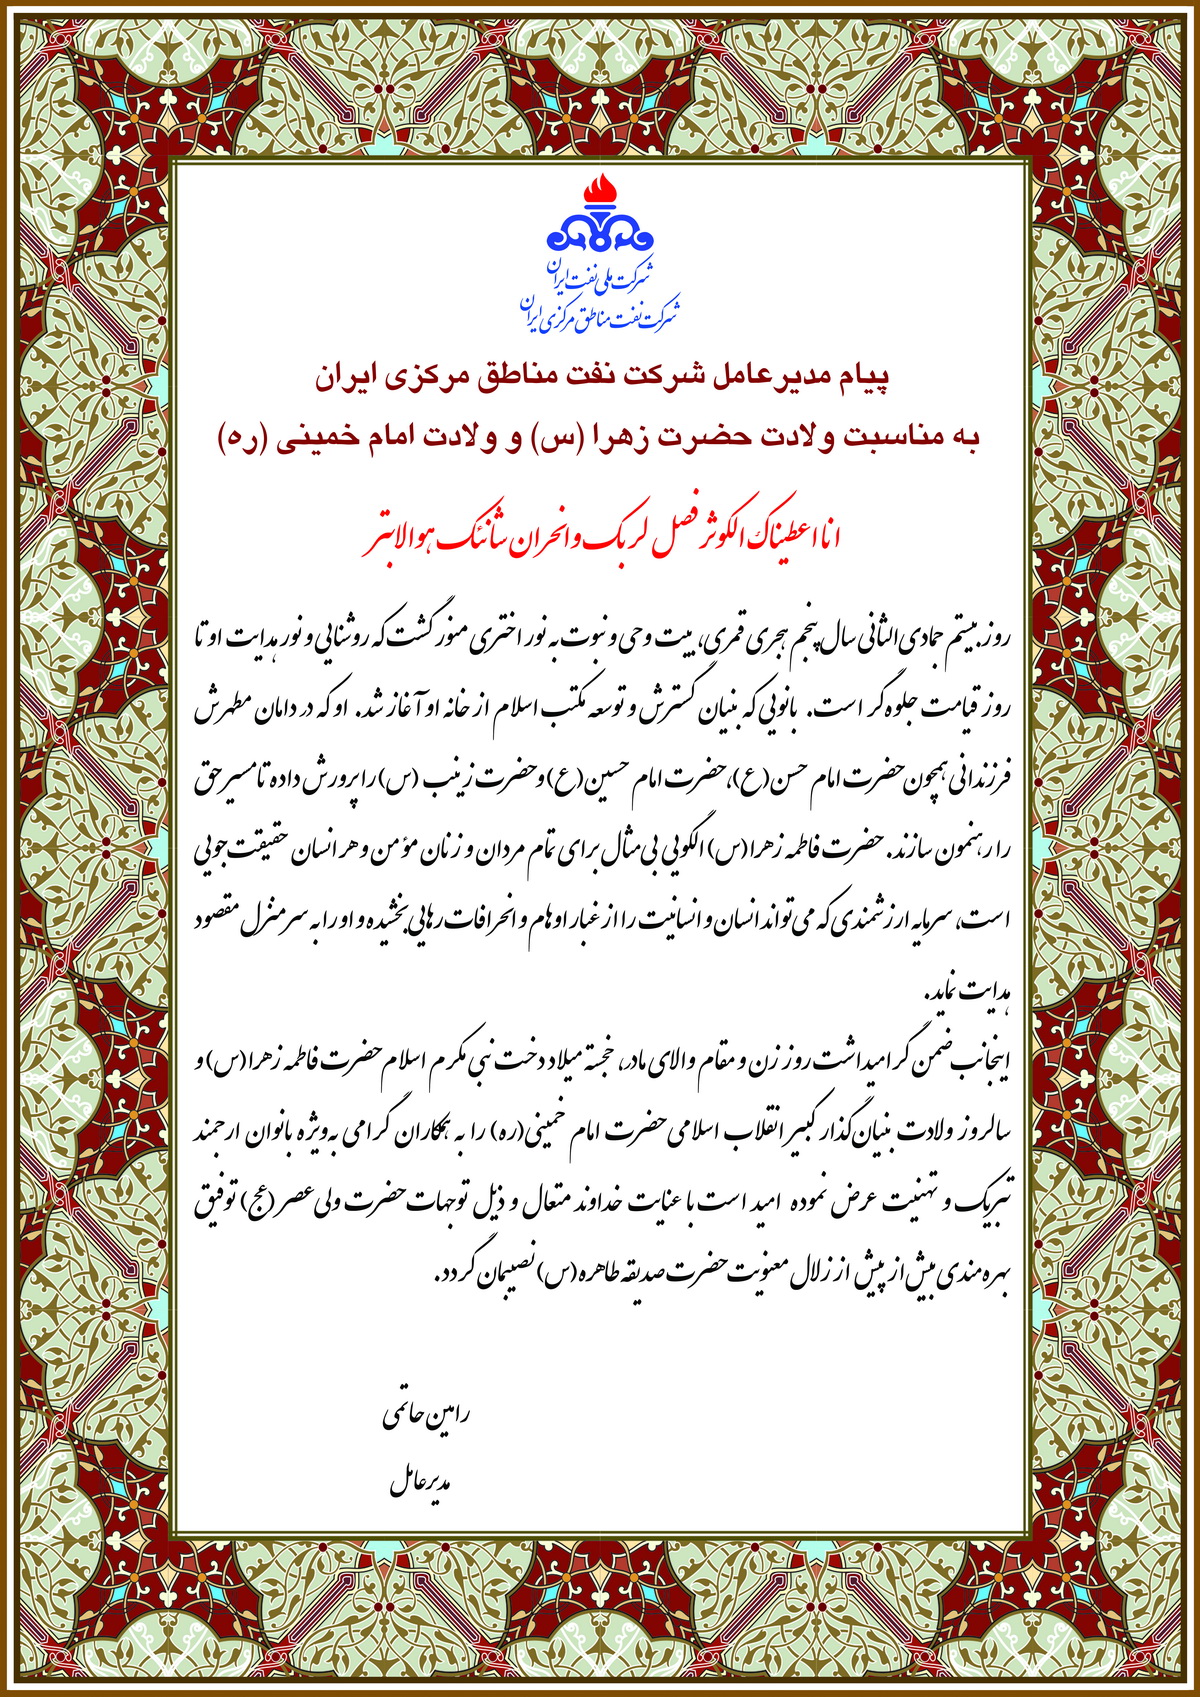 شرکت ملی نفت ایران
شرکت نفت مناطق مرکزی ایران
پیام مدیرعامل شرکت نفت مناطق مرکزی ایران
به مناسبت ولادت حضرت زهرا (س) و ولادت امام خمینی (ره)
انا اعطیناک الکوثر فصل لربک وانحر ان شانئک هو الابتر
روز بیستم جمادی الثانی سال پنجم هجری قمری، بیت وحی و نبوت به نور اختری منور گشت که روشنایی و نور هدایت او تا
روز قیامت جلوه‌گر است. بانویی که بنیان گسترش و توسعه مکتب اسلام از خانه او آغاز شد. او که در دامان مطهرش
فرزندانی همچون حضرت امام حسن(ع)، حضرت امام حسین(ع) و حضرت زینب (س) را پرورش داده تا مسیر حق
را رهنمون سازند. حضرت فاطمه زهرا(س) الگویی بی‌مثال برای تمام مردان و زنان مؤمن و هر انسان حقیقت‌جویی
است، سرمایه ارزشمندی که می‌تواند انسان و انسانیت را از غبار اوهام و انحرافات رهایی بخشیده و او را به سر منزل مقصود
هدایت نماید.
اینجانب ضمن گرامیداشت روز زن و مقام والای مادر، خجسته میلاد دخت نبی مکرم اسلام حضرت فاطمه زهرا(س) و
سالروز ولادت بنیان‌گذار کبیر انقلاب اسلامی حضرت امام خمینی(ره) را به همکاران گرامی به‌ویژه بانوان ارجمند
تبریک و تهنیت عرض نموده امید است با عنایت خداوند متعال و ذیل توجهات حضرت ولی عصر(عج) توفیق
بهره‌مندی بیش از پیش از زلال معنویت حضرت صدیقه طاهره(س) نصیبمان گردد.
رامین حاتمی
مدیرعامل